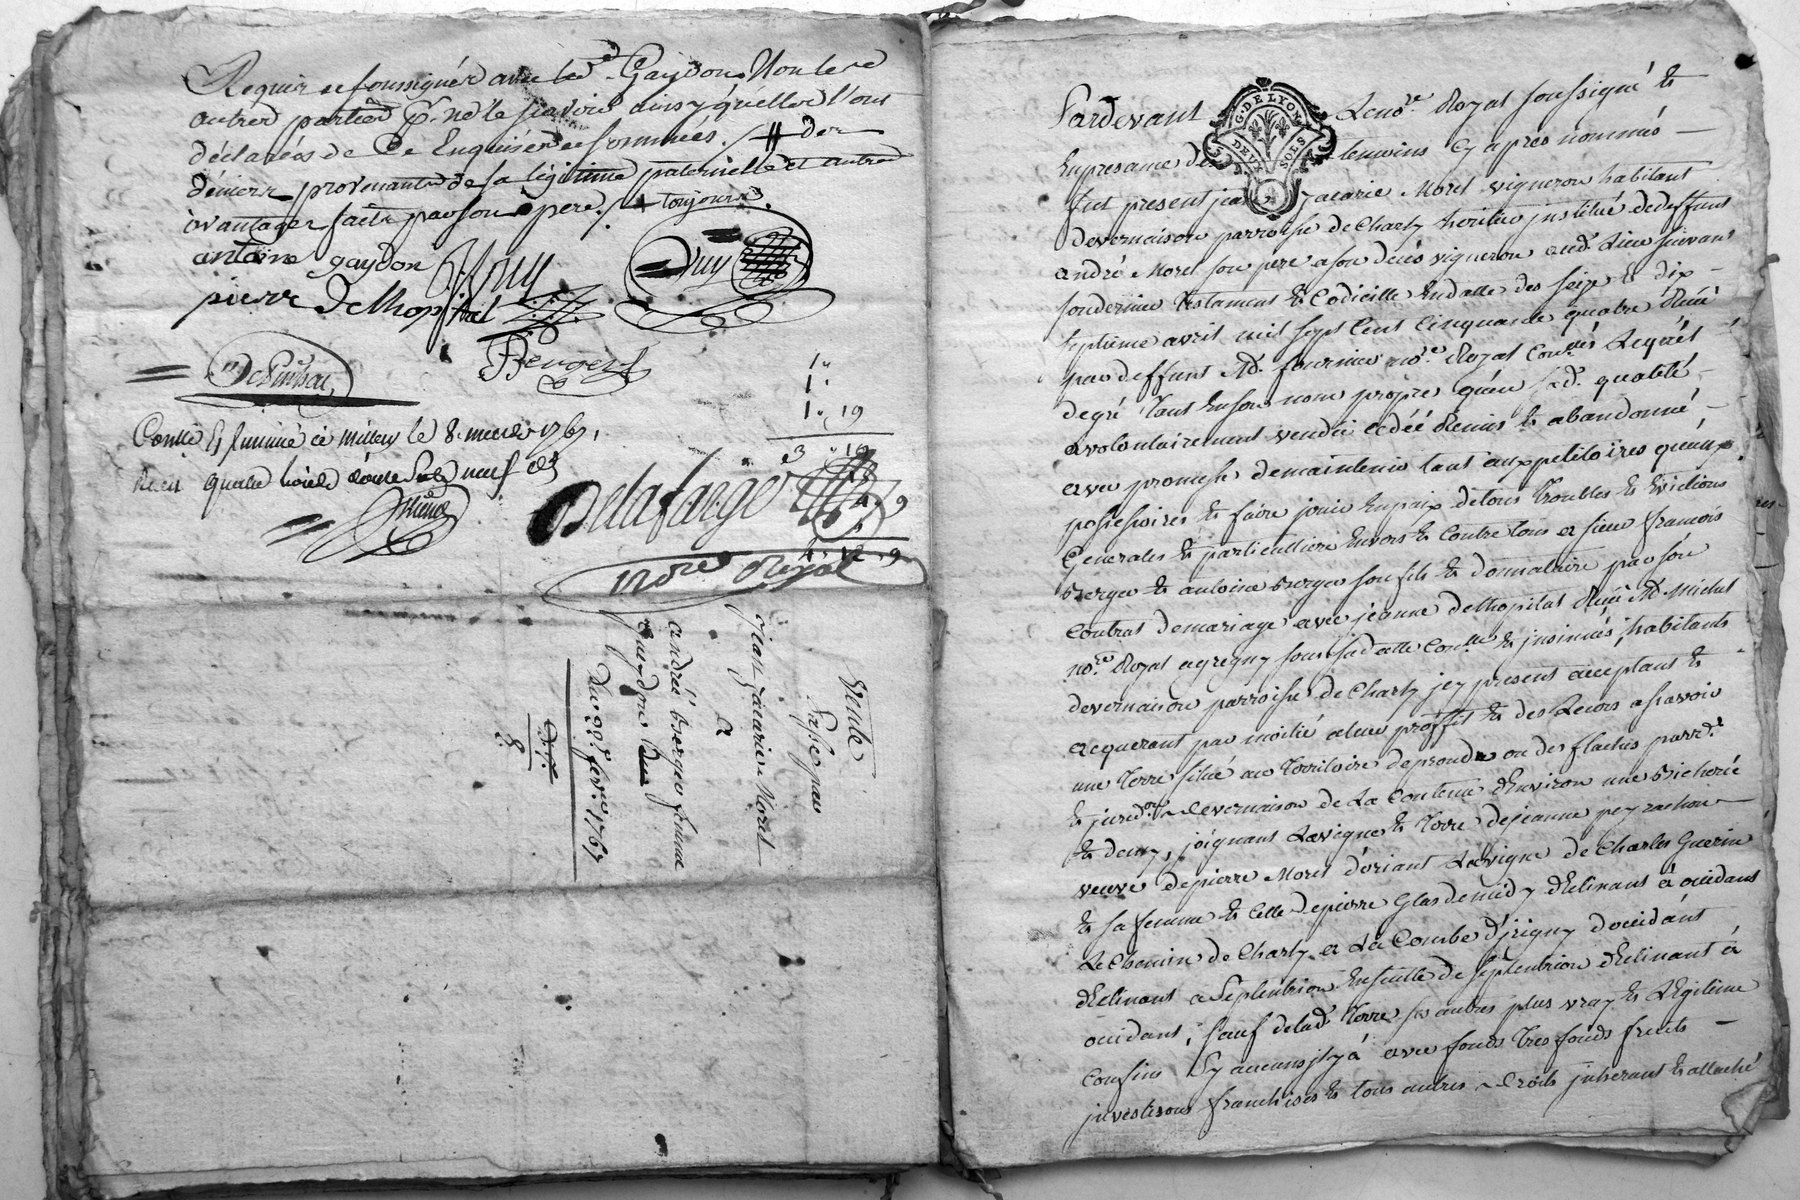 Requis de soussigner avec led. Gaydon Non les
autres parties p. ne le scavoir ainsy qu'elles l'ont
déclarées de ce Enquises et sommées. / # des
déniers provenants de sa légitime paternelle et autres
avantages faits par son père. / + toujours.
antoine gaydon
Duy
pierre Delhopital
Berger
1
1
1 19
3 19
Contlé & insinué a Millery le 8. mars 1767.
Recu quatre livres douze sols neuf ds
Delafarge
9
4 12 9
No.re Royal
Vente
passé par
jean Zacarie Morel
a
andré berger femme
gueydon
Du 22e fevr. 1767
8.
Pardevant Le no.re Royal soussigné &
En presance des temoins Cy après nommés
fut present jean Zacarie Morel vigneron habitant
de vernaison parroisse de Charly heritier institué de deffunt
andré Morel son pere a son décés vigneron aud. Lieu suivant
son dernier Testament & Codicille En datte des seize & dix
septième avril mil sept Cent Cinquante quatre Reçu
par deffunt Me. fournier no.re Royal Lequel
degré tant En son nom propre qu'en lad. qualité
a volontairement vendu cédé Remis & abandonné
avec promesse de maintenir tant aux petitoires qu'aux
possessoires & faire jouir En paix de tous Troubles & Evictions
Generales & particulliere Envers & Contre tous a sieur francois
berger & antoine berger son fils & donnataire par son
Contrat de mariage avec jeanne delhopital Reçu Me. Michel
no.re Royal a grigny sous sa datte & insinué, habitants
de vernaison parroisse de Charly jcy present acceptant &
acquerant par moitié a leur proffit & des Leurs a scavoir
une Terre situé au Territoire de ou des flaches parr.
& jured.on de vernaison de La Contenue d'Environ une bicherée
& demy, joignant La vigne & Terre de jeanne peyrachon
veuve de pierre Morel d'oriant La vigne de Charles Guerin
& sa femme & Celle de pierre Glas de midy declinant à occidant
Le Chemin de Charly a La Combe d'jrigny d'occidant
declinant a Septentrion Ensuitte de septentrion declinant à
occidant; sauf de lad. Terre ses autres plus vray & Legitime
Confins Sy aucuns jl y à avec fonds Tres fonds fruits
jnvestisons franchises & tous autres droits jnherant & attaché
G. DE LYON
DEUX SOLS